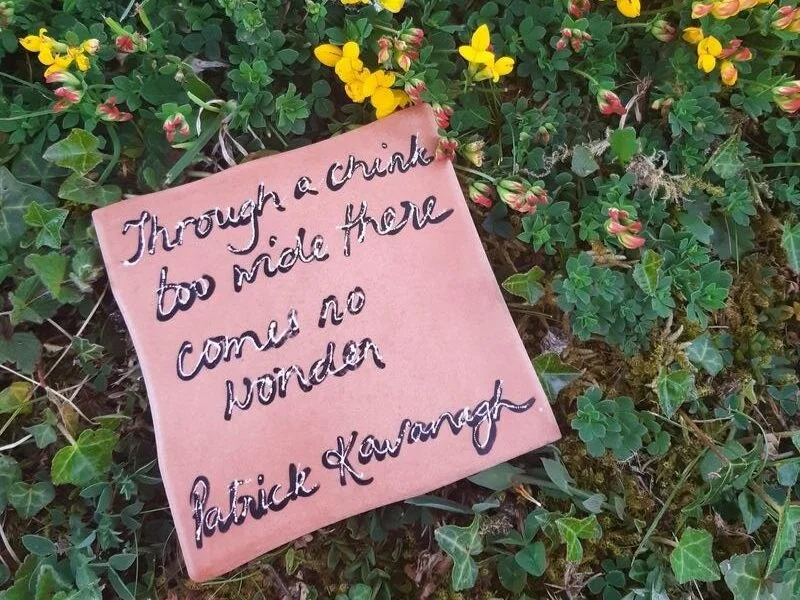 Through a chink
too wide there
comes no
wonder
Patrick Kavanagh